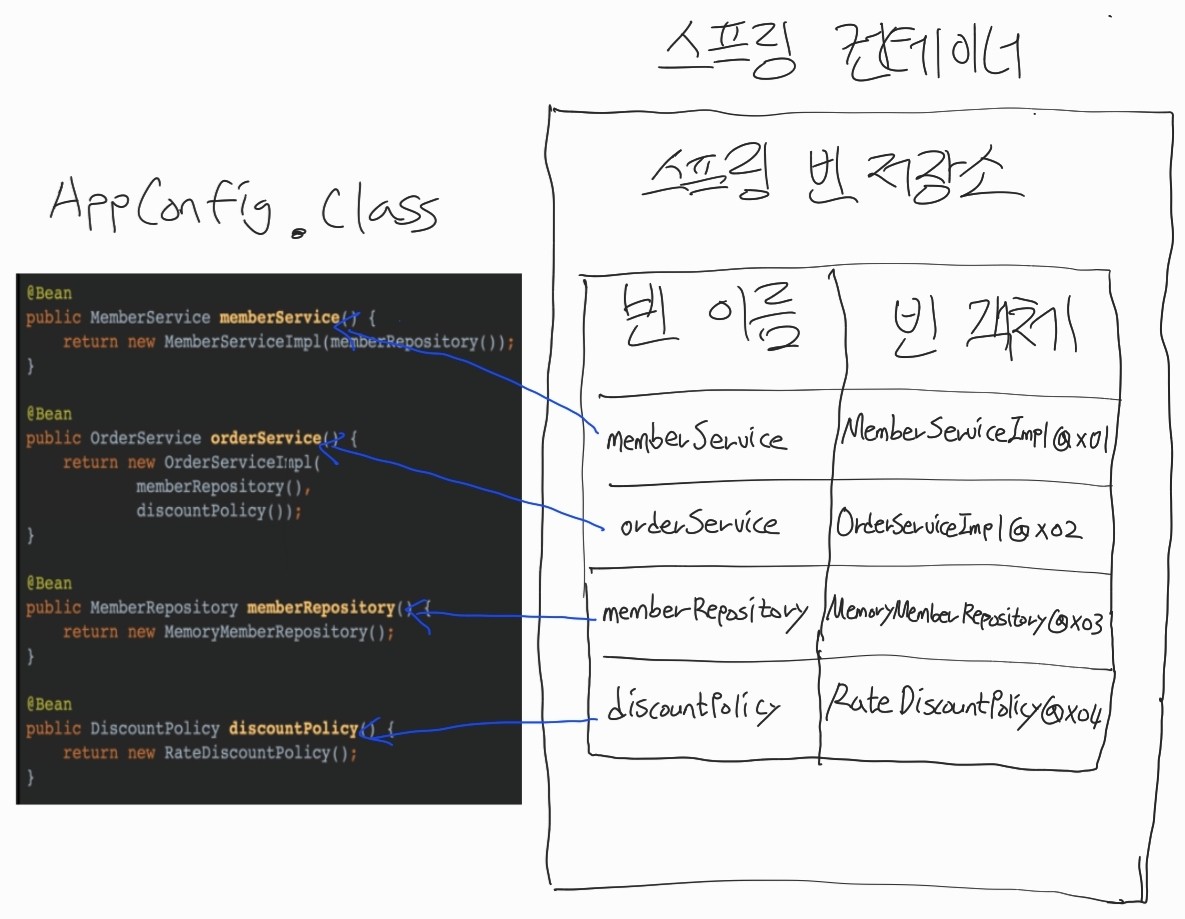 스프링 컨테이너
스프링 빈 저장소
AppConfig.class
@Bean
public MemberService memberService() {
return new MemberServiceImpl(memberRepository());
}
@Bean
public OrderService orderService() {
return new OrderServiceImpl(
memberRepository(),
discountPolicy());
}
@Bean
public MemberRepository memberRepository() {
return new MemoryMemberRepository();
}
@Bean
public DiscountPolicy discountPolicy() {
return new RateDiscountPolicy();
}
빈 이름 빈 객체
memberService MemberServiceImpl@x01
orderService OrderServiceImpl@x02
memberRepository MemoryMemberRepository@x03
discountPolicy RateDiscountPolicy@x04